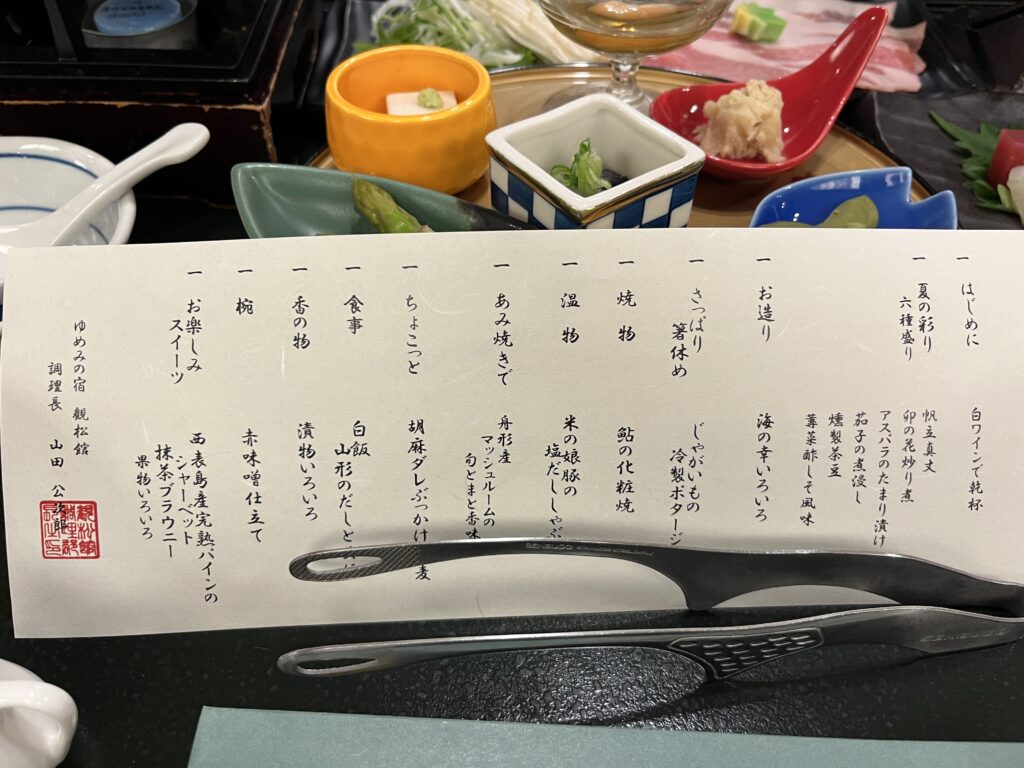 一 はじめに
白ワインで乾杯
一 夏の彩り
六種盛り
帆立真丈
卯の花炒り煮
アスパラのたまり漬け
茄子の煮浸し
燻製茶豆
蓴菜酢しそ風味
一 お造り
海の幸いろいろ
一 さっぱり
箸休め
じゃがいもの
冷製ポタージ
一 焼物
鮎の化粧焼
一 温物
米の娘豚の
塩だししゃぶ
一 あみ焼きで
舟形産
マッシュルームの
旬とまと香味
一 ちょこっと
胡麻ダレぶっかけ
麦
一 食事
白飯
山形のだしと
一 香の物
漬物いろいろ
一 椀
赤味噌仕立て
一 お楽しみ
スイーツ
西表島産完熟パインの
シャーベット
抹茶ブラウニー
果物いろいろ
ゆめみの宿 観松館
調理長 山田 公